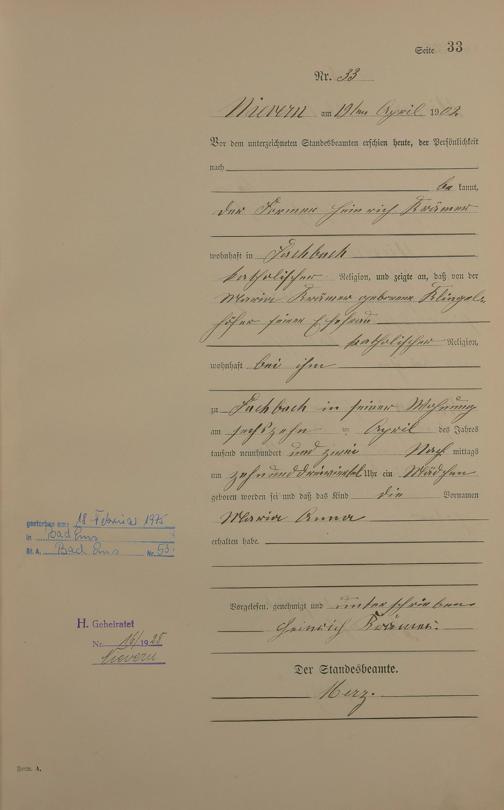 Seite 33
Nr. 33
Nievern am 19ten April 1902
Vor dem unterzeichneten Standesbeamten erschien heute, der Persönlichkeit
nach
be kannt,
der Former Heinrich Krämer
wohnhaft in Fachbach
katholischer Religion, und zeigte an, daß von der
Maria Krämer geborene Klingel-
höfer seiner Ehefrau
katholischer Religion,
wohnhaft bei ihm
zu Fachbach in seiner Wohnung
am sechszehn ten April des Jahres
tausend neunhundert und zwei Nach mittags
um zehnunddreiviertel Uhr ein Mädchen
geboren worden sei und daß das Kind die Vornamen
Maria Anna
erhalten habe.
gestorben am: 18 Februar 1975
in Bad Ems
St. A. Bad Ems Nr. 55
Vorgelesen, genehmigt und unterschrieben
Heinrich Krämer.
H. Geheiratet
Nr. 16/1928
Nievern
Der Standesbeamte.
Merz.
Form. A.